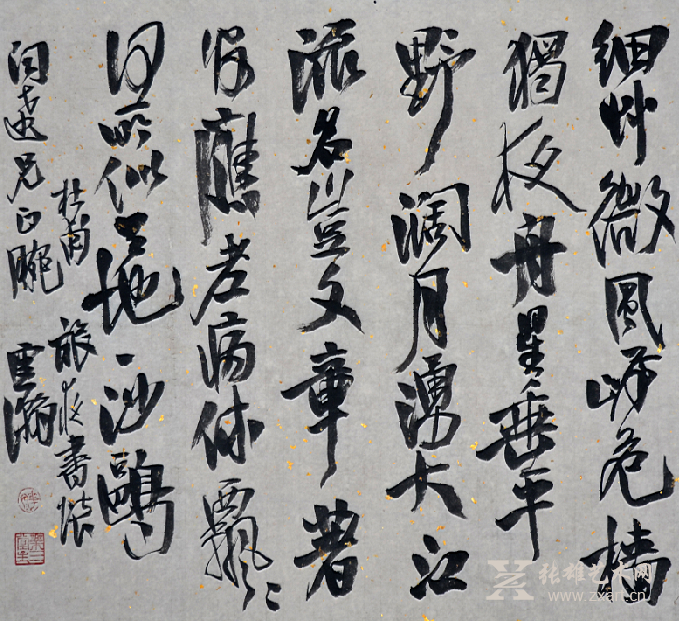 細艸微風岸危檣
獨夜舟星垂平
野濶月湧大江
流名豈文章著
官應老病休飄〻
何所似天地一沙鷗
杜甫 旅夜書懷
兄正腕 雲瀚
张雄艺术网
www.zxart.cn